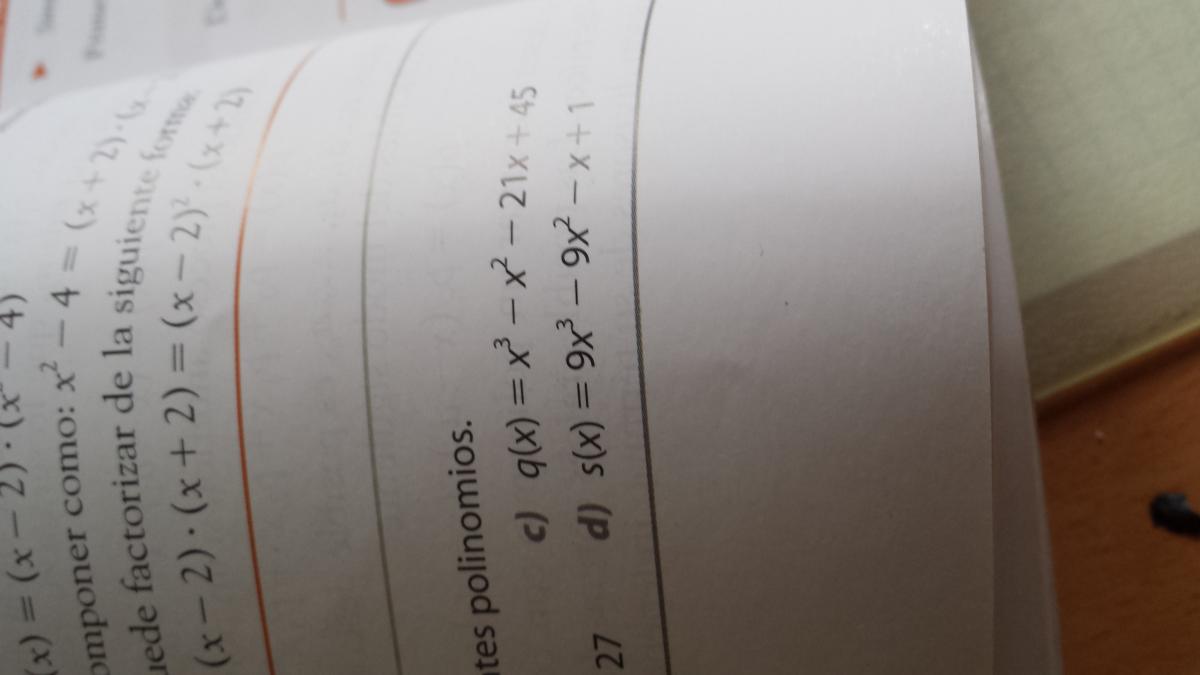 (x) = (x − 2) · (x² − 4)
omponer como: x² − 4 = (x + 2) · (x
uede factorizar de la siguiente forma:
(x − 2) · (x + 2) = (x − 2)² · (x + 2)
ntes polinomios.
c) q(x) = x³ − x² − 21x + 45
27 d) s(x) = 9x³ − 9x² − x + 1